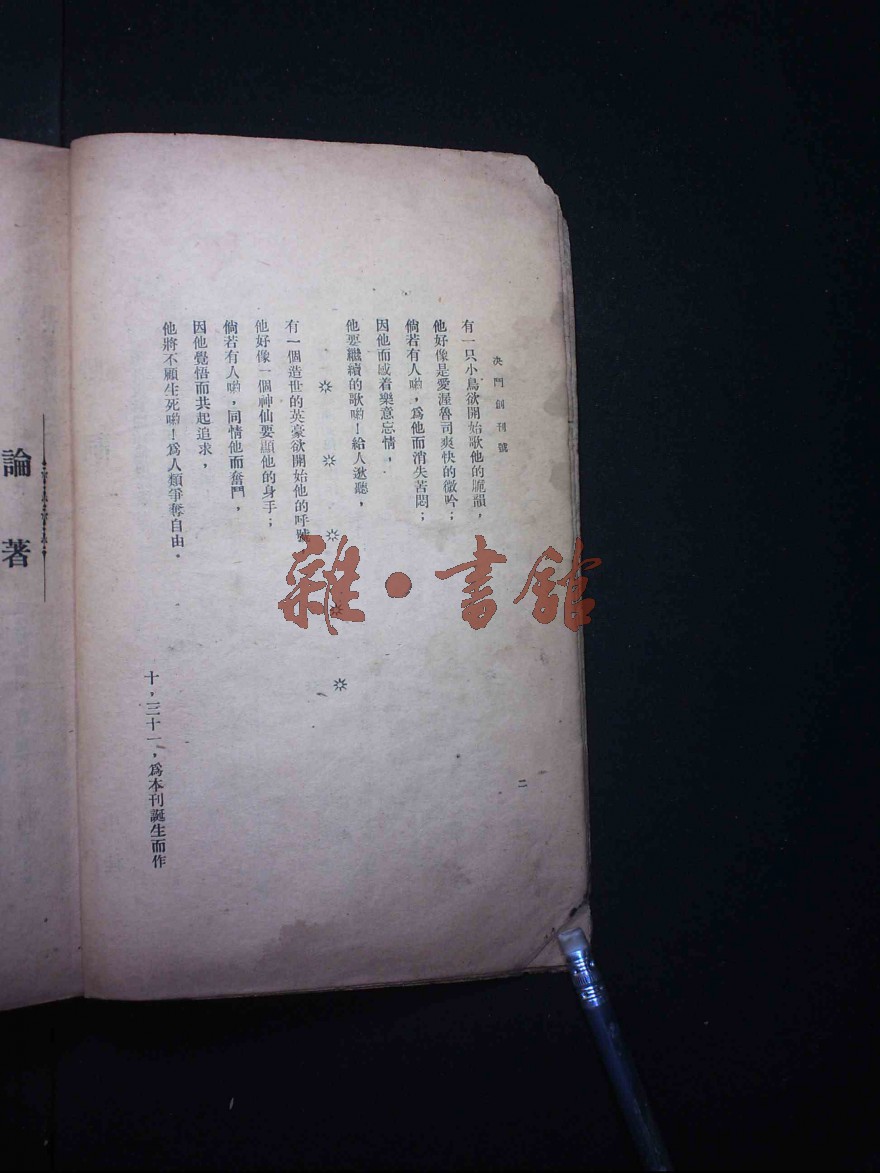 决鬥創刊號
有一只小鳥欲開始歌他的脆韻，
他好像是愛渥魯司爽快的微吟；
倘若有人喲，爲他而消失苦悶；
因他而感着樂意忘情，
他要繼續的歌喲！給人遨聽，
有一個造世的英豪欲開始他的呼號
他好像一個神仙要顯他的身手；
倘若有人喲，同情他而奮鬥，
因他覺悟而共起追求，
他將不顧生死喲！爲人類爭奪自由。
十，三十一，爲本刊誕生而作
二
論著
雜·書館